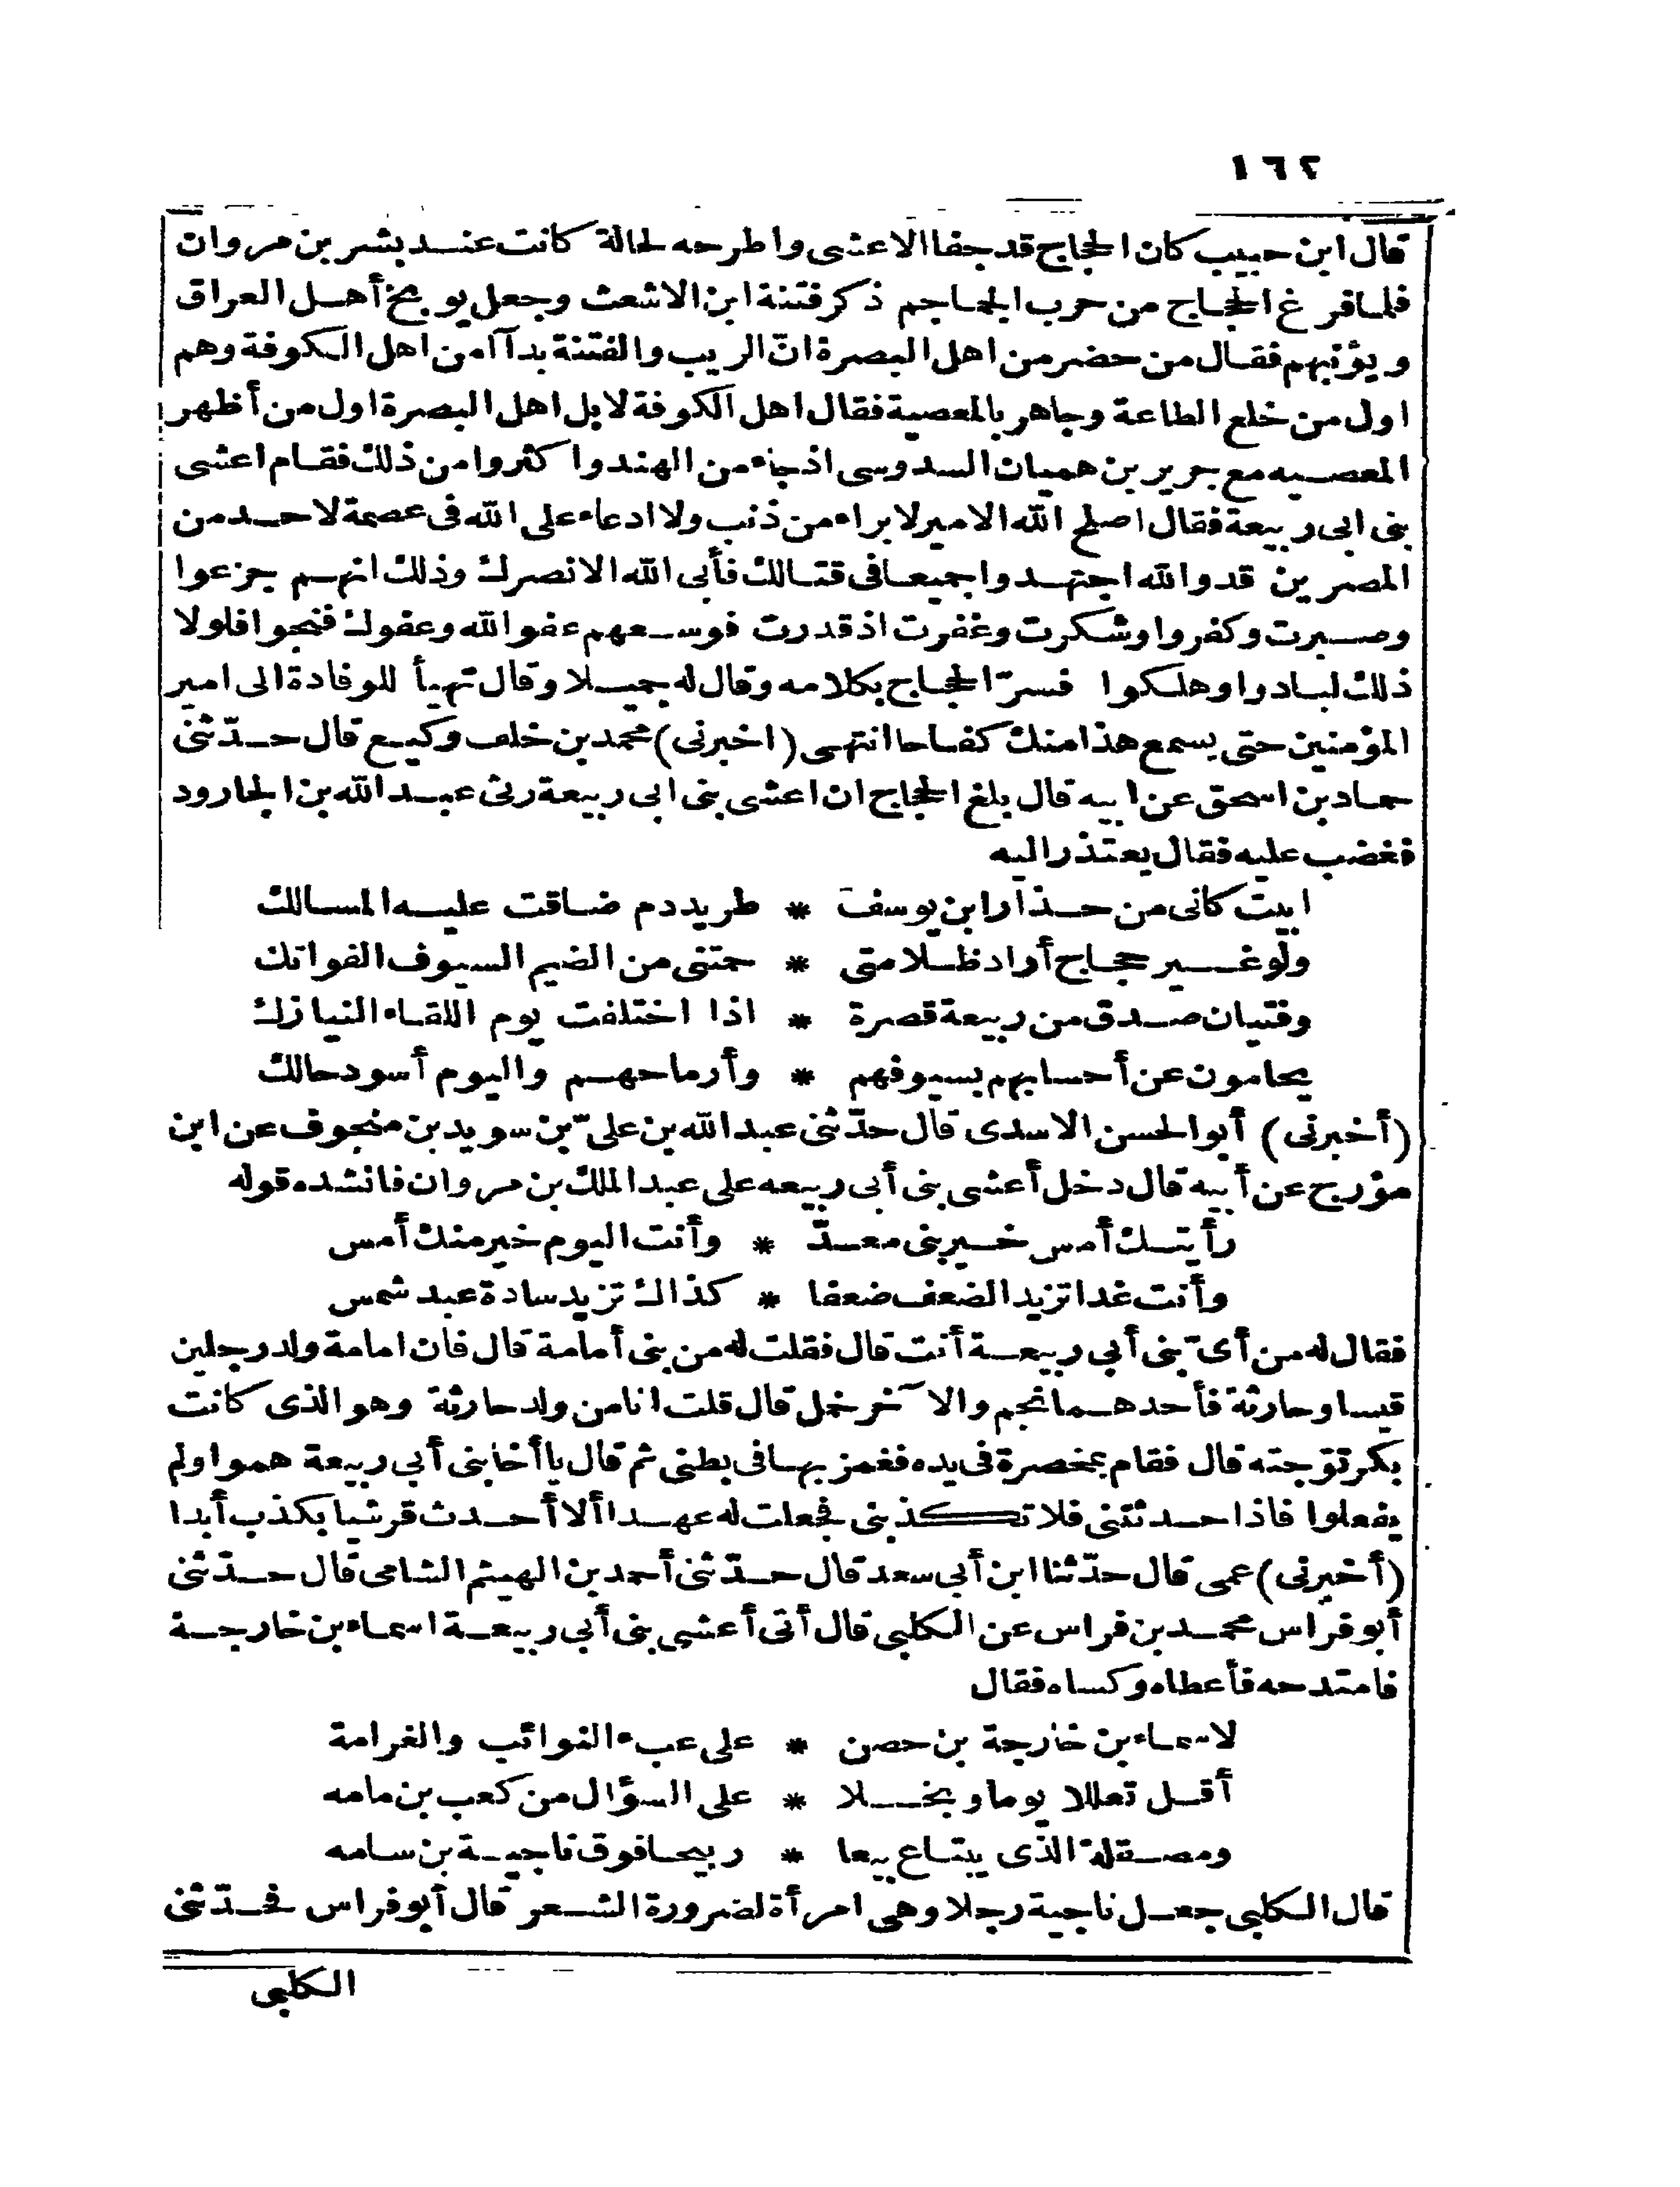 ١٦٢
قال ابن حبيب كان الحجاج قد جفا الاعشى واطرحه لحالة كانت عند بشر بن مروان
فلما فرغ الحجاج من حرب الجماجم ذكر فتنة ابن الاشعث وجعل يوبخ أهل العراق
ويؤنبهم فقال من حضر من اهل البصرة انّ الريب والفتنة بدآ امن اهل الكوفة وهم
اول من خلع الطاعة وجاهر بالمعصية فقال اهل الكوفة لا بل اهل البصرة اول من أظهر
المعصيه مع جرير بن هميان السدوسى اذ جاء من الهند واكثروا من ذلك فقام اعشى
بنى ابى ربيعة فقال اصلح الله الامير لا براءمن ذنب ولا ادعاء على الله فى عصمة لاحد من
المصرين قد والله اجتهدوا جميعا فى قتالك فأبى الله الا نصرك وذلك انهم جزعوا
وصبرت وكفروا وشكرت وغفرت اذ قدرت فوسعهم عفو الله وعفوك فنجوا فلولا
ذلك لبادوا وهلكوا فسرّ الحجاج بكلامه وقال له جميلا وقال تهيأ للوفادة الى امير
المؤمنين حتى يسمع هذا منك كفاحا انتهى (اخبرنى) محمد بن خلف وكيع قال حدّثنى
حماد بن اسحق عن ابيه قال بلغ الحجاج ان اعشى بنى ابى ربيعة رثى عبد الله بن الجارود
فغضب عليه فقال يعتذر اليه
ابيت كانى من حذار ابن يوسف * طريد دم ضاقت عليه المسالك
ولو غير حجاج أراد ظلامتى * حمتنى من الضيم السيوف الفواتك
وفتيان صدق من ربيعة قصرة * اذا اختلفت يوم اللقاء النيازك
يحامون عن أحسابهم بسيوفهم * وأرماحهم واليوم أسود حالك
(أخبرنى) أبو الحسن الاسدى قال حدّثنى عبد الله بن علىّ بن سويد بن منجوف عن ابن
مؤرج عن أبيه قال دخل أعشى بنى أبى ربيعه على عبد الملك بن مروان فانشده قوله
رأيتك أمس خير بنى معدّ * وأنت اليوم خير منك أمس
وأنت غدا تزيد الضعف ضعفا * كذاك تزيد سادة عبد شمس
فقال له من أىّ بنى أبى ربيعة أنت قال فقلت له من بنى أمامة قال فان امامة ولد رجلين
قيسا وحارثة فأحدهما نجم والآخر خمل قال قلت انا من ولد حارثة وهو الذى كانت
بكر توّجته قال فقام بمخصرة فى يده فغمز بها فى بطنى ثم قال يا أخا بنى أبى ربيعة هموا ولم
يفعلوا فاذا حدثتنى فلا تكذبنى فجعلت له عهدا ألا أحدث قرشيا بكذب أبدا
(أخبرنى) عمى قال حدّثنا ابن أبى سعد قال حدّثنى أحمد بن الهيثم الشامى قال حدّثنى
أبو فراس محمد بن فراس عن الكلبى قال أتى أعشى بنى أبى ربيعة اسماء بن خارجة
فامتدحه فأعطاه وكساه فقال
لاسماء بن خارجة بن حصن * على عبء النوائب والغرامة
أقل تعللا يوما وبخلا * على السؤال من كعب بن مامه
ومصقلة الذى يبتاع بيعا * ربيحا فوق ناجية بن سامه
قال الكلبى جعل ناجية رجلا وهى امرأة لضرورة الشعر قال أبو فراس فحدّثنى
الكلبى